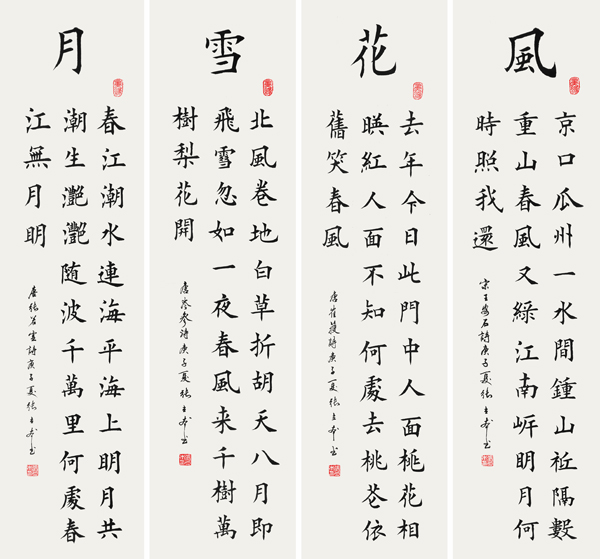 風
京口瓜州一水間鍾山衹隔數
重山春風又緑江南岸明月何
時照我還
宋王安石詩庚子夏張
花
去年今日此門中人面桃花相
暎紅人面不知何處去桃花依
舊笑春風
唐崔護詩庚子夏張
雪
北風卷地白草折胡天八月即
飛雪忽如一夜春風来千樹萬
樹梨花開
唐岑參詩庚子夏張
月
春江潮水連海平海上明月共
潮生灧灧随波千萬里何處春
江無月明
唐張若虛詩庚子夏張